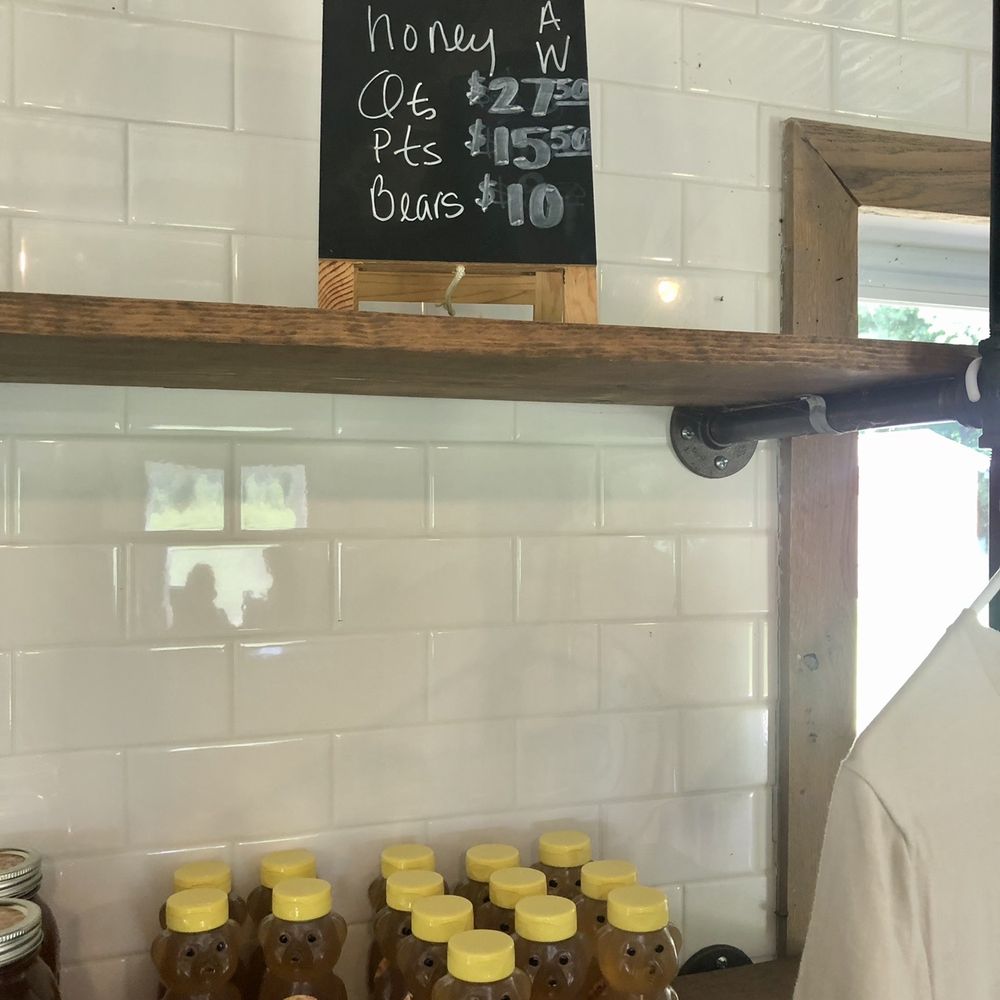 honey A
W
Qts $27.50
Pts $15.50
Bears $10